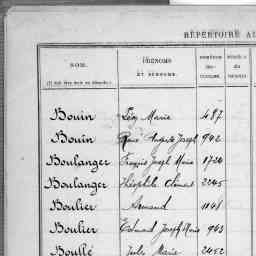 RÉPERTOIRE AL
NOM.
PRÉNOMS
ET SURNOMS.
NUMÉROS
Bouin Léon Marie 487
Bouin René Auguste Joseph 942
Boulanger François Joseph Marie 1724
Boulanger Théophile Clément 2245
Boulier Armand 1141
Boulier Edmond Joseph Marie 963
Boullé Jules Marie 2452